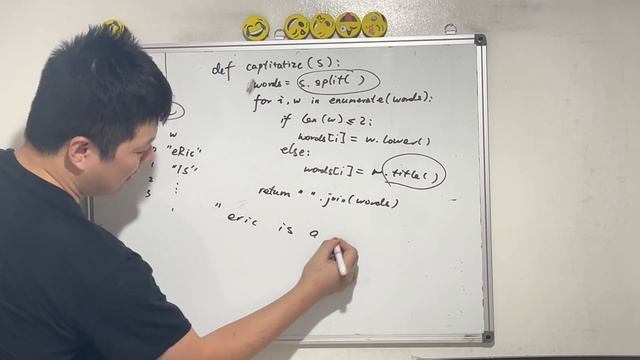 def captitatize(s):
words = s.split( )
for i, w in enumerate(words):
if len(w) ≤ 2:
words[i] = w.lower()
else:
words[i] = w.title()
return " ".join(words)
w
"eRic"
1 "IS"
2 :
3
" eric is a